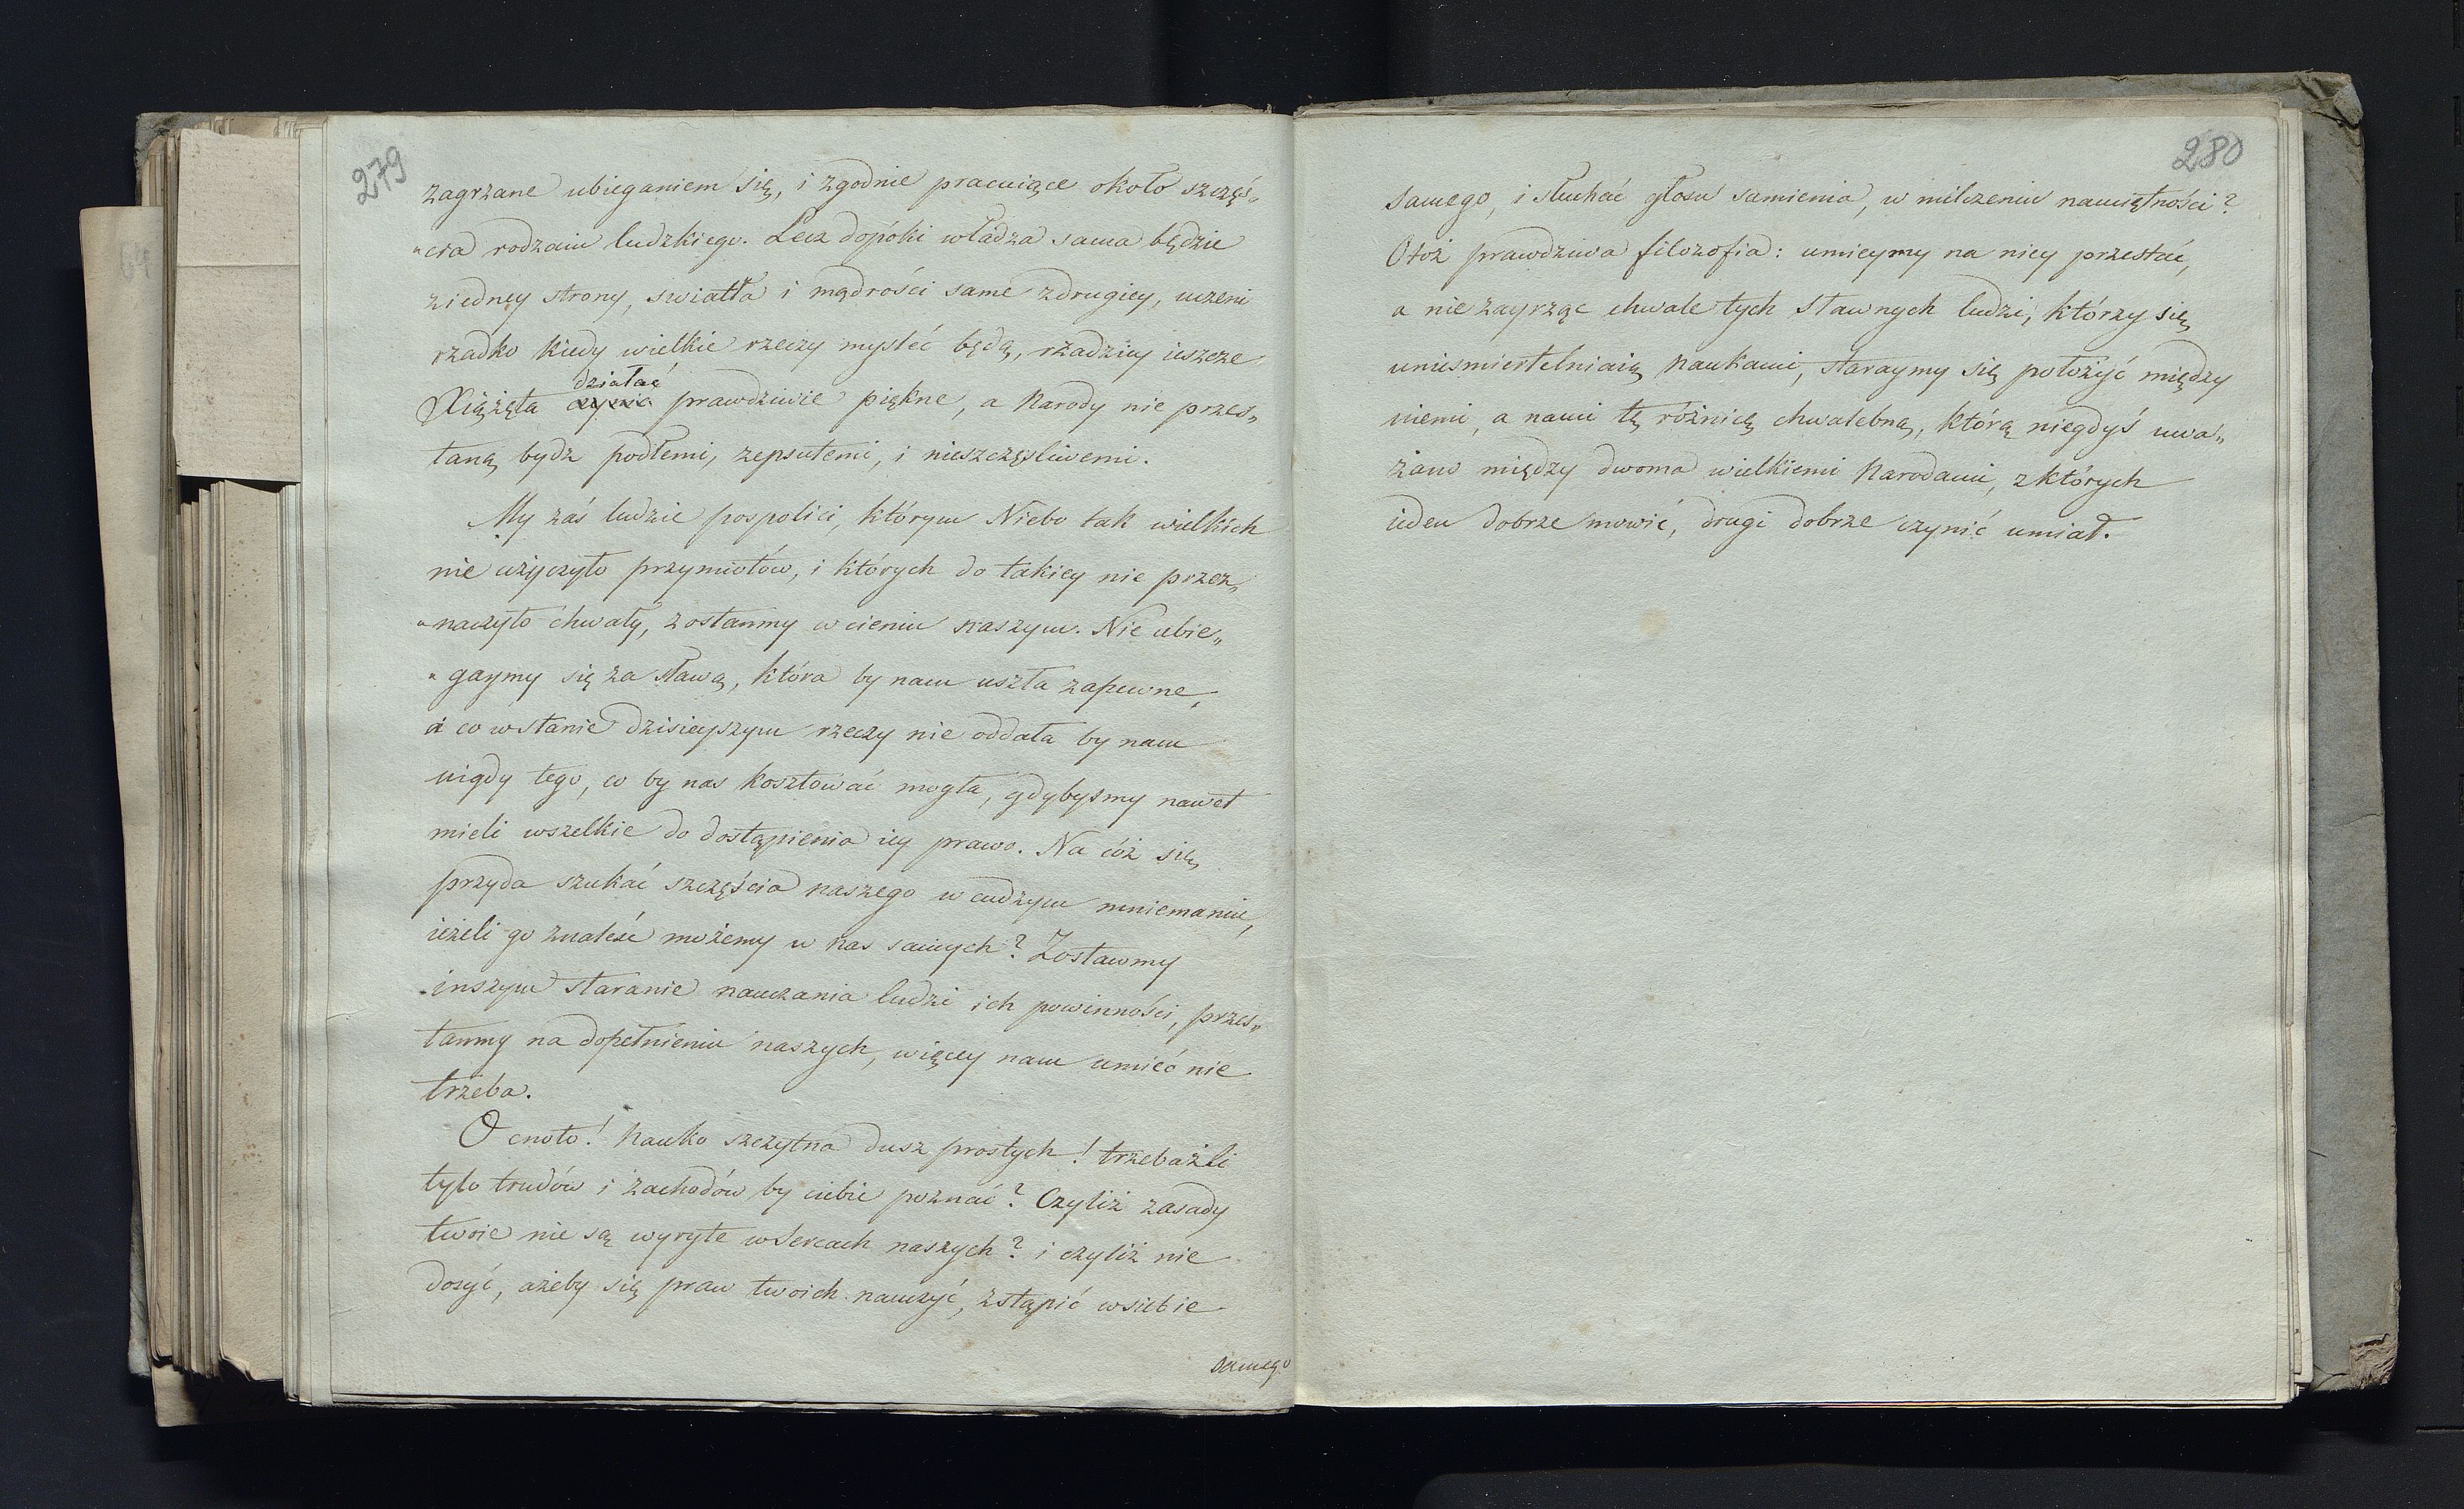 279
zagrzane ubieganiem się, i zgodnie pracuiące około szczęś„
„cia rodzaiu ludzkiego. Lecz dopóki władza sama będzie
ziedney strony, swiatła i mądrości same zdrugiey, uczeni
rzadko kiedy wielkie rzeczy mysleć będą, rzadziey ieszcze
działać
Xiążęta czynić prawdziwie piękne, a Narody nie przes„
taną bydz podłemi, zepsutemi, i nieszczęsliwemi.
My zaś ludzie pospolici, którym Niebo tak wielkich
nie użyczyło przymiotów, i których do takiey nie przez„
„naczyło chwały, zostanmy w cieniu naszym. Nie ubie„
„gaymy się za sławą, która by nam uszła zapewne,
a co wstanie dzisieyszym rzeczy nie oddała by nam
nigdy tego, co by nas kosztować mogła, gdybysmy nawet
mieli wszelkie do dostąpienia iey prawo. Na cóż się
przyda szukać szczęścia naszego w cudzym mniemaniu,
ieżeli go znaleść możemy w nas samych? Zostawmy
inszym staranie nauczania ludzi ich powinności, przes„
tanmy na dopełnieniu naszych, więcey nam umieć nie
trzeba.
O cnoto! Nauko szczytna dusz prostych! trzebażli
tylo trudów i zachodów by ciebie poznać? Czyliż zasady
twoie nie są wyryte wsercach naszych? i czyliż nie
dosyć, ażeby się praw twoich nauczyć, zstąpić wsiebie
samego
280
samego, i słuchać głosu samienia, w milczeniu namiętności?
Otoż prawdziwa filozofia: umieymy na niey przestać,
a nie zayrząc chwale tych sławnych ludzi, którzy się
unieśmiertelniaią Naukami, staraymy się położyć między
niemi, a nami tę różnicę chwalebną, którą niegdyś uwa„
żano między dwoma wielkiemi Narodami, zktórych
ieden dobrze mowić, drugi dobrze czynić umiał.